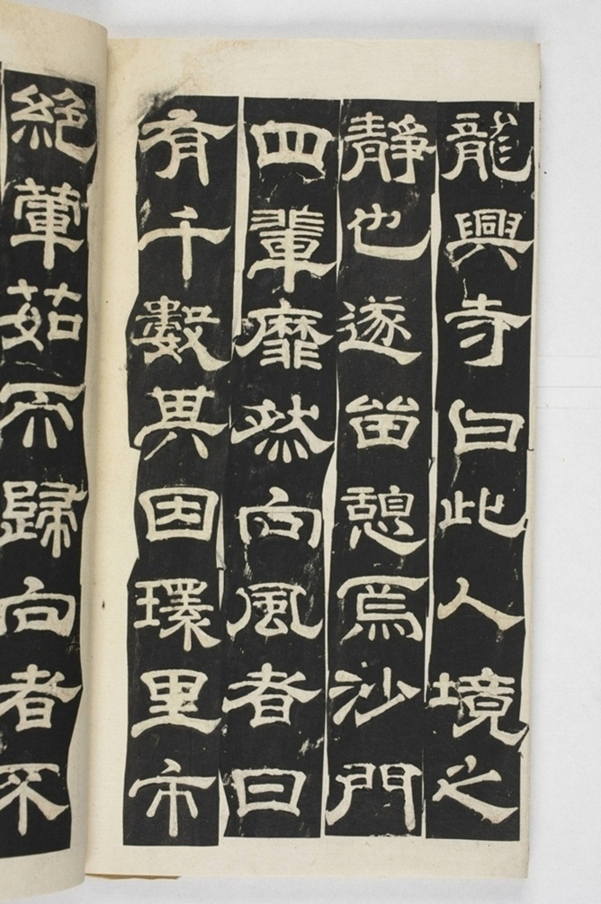 龍興寺曰此人境之
靜也遂留憩焉沙門
四輩靡然向風者日
有千數其因環里市
絕葷茹不歸向者不